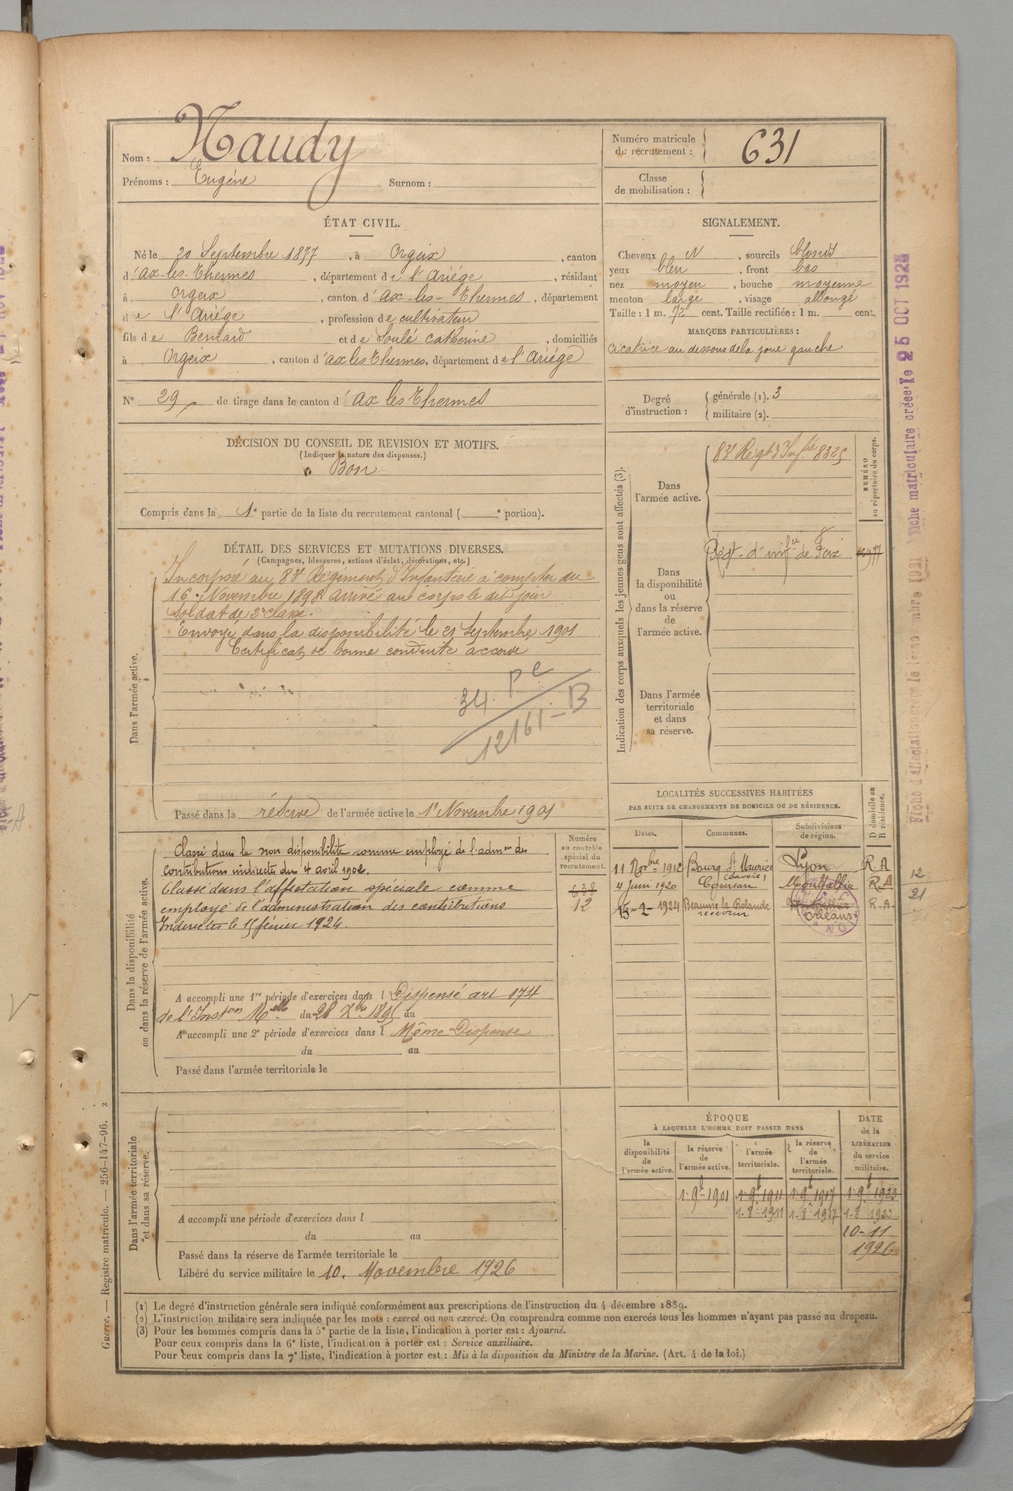 Nom : Naudy
Prénoms : Eugène Surnom :
Numéro matricule de recrutement : 631
Classe de mobilisation :
ÉTAT CIVIL.
Né le 20 Septembre 1877, à Orgeix, canton
d'Ax-les-Thermes, département de l'Ariége, résidant
à Orgeix, canton d'Ax-les-Thermes, département
de l'Ariége, profession de cultivateur
fils de Bernard et de Soulé Catherine, domiciliés
à Orgeix, canton d'ax les Thermes, département de l'Ariége
N° 29 de tirage dans le canton d'Ax les Thermes
SIGNALEMENT.
Cheveux N, sourcils blonds
yeux bleu, front bas
nez moyen, bouche moyenne
menton large, visage allongé
Taille : 1 m. 72 cent. Taille rectifiée : 1 m. cent.
MARQUES PARTICULIÈRES :
cicatrice au dessous de la joue gauche
Degré d'instruction : générale (1). 3
militaire (2).
DÉCISION DU CONSEIL DE REVISION ET MOTIFS.
(Indiquer la nature des dispenses.)
Bon
Compris dans la 1e partie de la liste du recrutement cantonal ( e portion).
DÉTAIL DES SERVICES ET MUTATIONS DIVERSES.
(Campagnes, blessures, actions d'éclat, décorations, etc.)
Dans l'armée active.
Incorporé au 87 Régiment d'Infanterie à compter du
16 Novembre 1898. Arrivé au corps le dit jour
Soldat de 2e classe.
Envoyé dans la disponibilité le 21 Septembre 1901
Certificat de bonne conduite accordé
34 pe
12161-B
Passé dans la réserve de l'armée active le 1er Novembre 1901
Indication des corps auxquels les jeunes gens sont affectés (3).
NUMÉRO au répertoire du corps.
Dans l'armée active.
87 Regt d'Infie 8325
Dans la disponibilité ou dans la réserve de l'armée active.
Régt. d'infie de Foix
Dans l'armée territoriale et dans sa réserve.
LOCALITÉS SUCCESSIVES HABITÉES
PAR SUITE DE CHANGEMENTS DE DOMICILE OU DE RÉSIDENCE.
Dates. Communes. Subdivisions de région. D domicile ou R résidence.
11 Novbre 1912 Bourg St Maurice (Savoie) Lyon R A
4 Juin 1920 Coursan R A
15-2-1924 Beaune la Rolande receveur Orléans R.A.
12
21
Dans la disponibilité ou dans la réserve de l'armée active.
Numéro au contrôle spécial du recrutement.
638
12
Classé dans la non disponibilité comme employé de l'admon des
contributions indirectes du 4 avril 1902.
Classé dans l'affectation spéciale comme
employé de l'administration des contributions
Indirectes le 15 février 1924.
A accompli une 1re période d'exercices dans l Dispensé art 174
de l'Inston Melle du 28 Xbre 1895 au
A accompli une 2e période d'exercices dans l Même Dispense
du au
Passé dans l'armée territoriale le
Dans l'armée territoriale et dans sa réserve.
A accompli une période d'exercices dans l
du au
Passé dans la réserve de l'armée territoriale le
Libéré du service militaire le 10. Novembre 1926
ÉPOQUE
À LAQUELLE L'HOMME DOIT PASSER DANS
DATE de la LIBÉRATION du service militaire.
la disponibilité de l'armée active.
la réserve de l'armée active.
l'armée territoriale.
la réserve de l'armée territoriale.
1.9b 1901 1.9b 1911 1.9b 1917 1.9b 1923
1.8.1911 1.8.1917 1.8.1923
10-11
1926
(1) Le degré d'instruction générale sera indiqué conformément aux prescriptions de l'instruction du 4 décembre 1889.
(2) L'instruction militaire sera indiquée par les mots : exercé ou non exercé. On comprendra comme non exercés tous les hommes n'ayant pas passé au drapeau.
(3) Pour les hommes compris dans la 5e partie de la liste, l'indication à porter est : Ajourné.
Pour ceux compris dans la 6e liste, l'indication à porter est : Service auxiliaire.
Pour ceux compris dans la 7e liste, l'indication à porter est : Mis à la disposition du Ministre de la Marine. (Art. 4 de la loi.)
Guerre. — Registre matricule. — 256-147-96.
Fiche matriculaire créée le 25 OCT 192